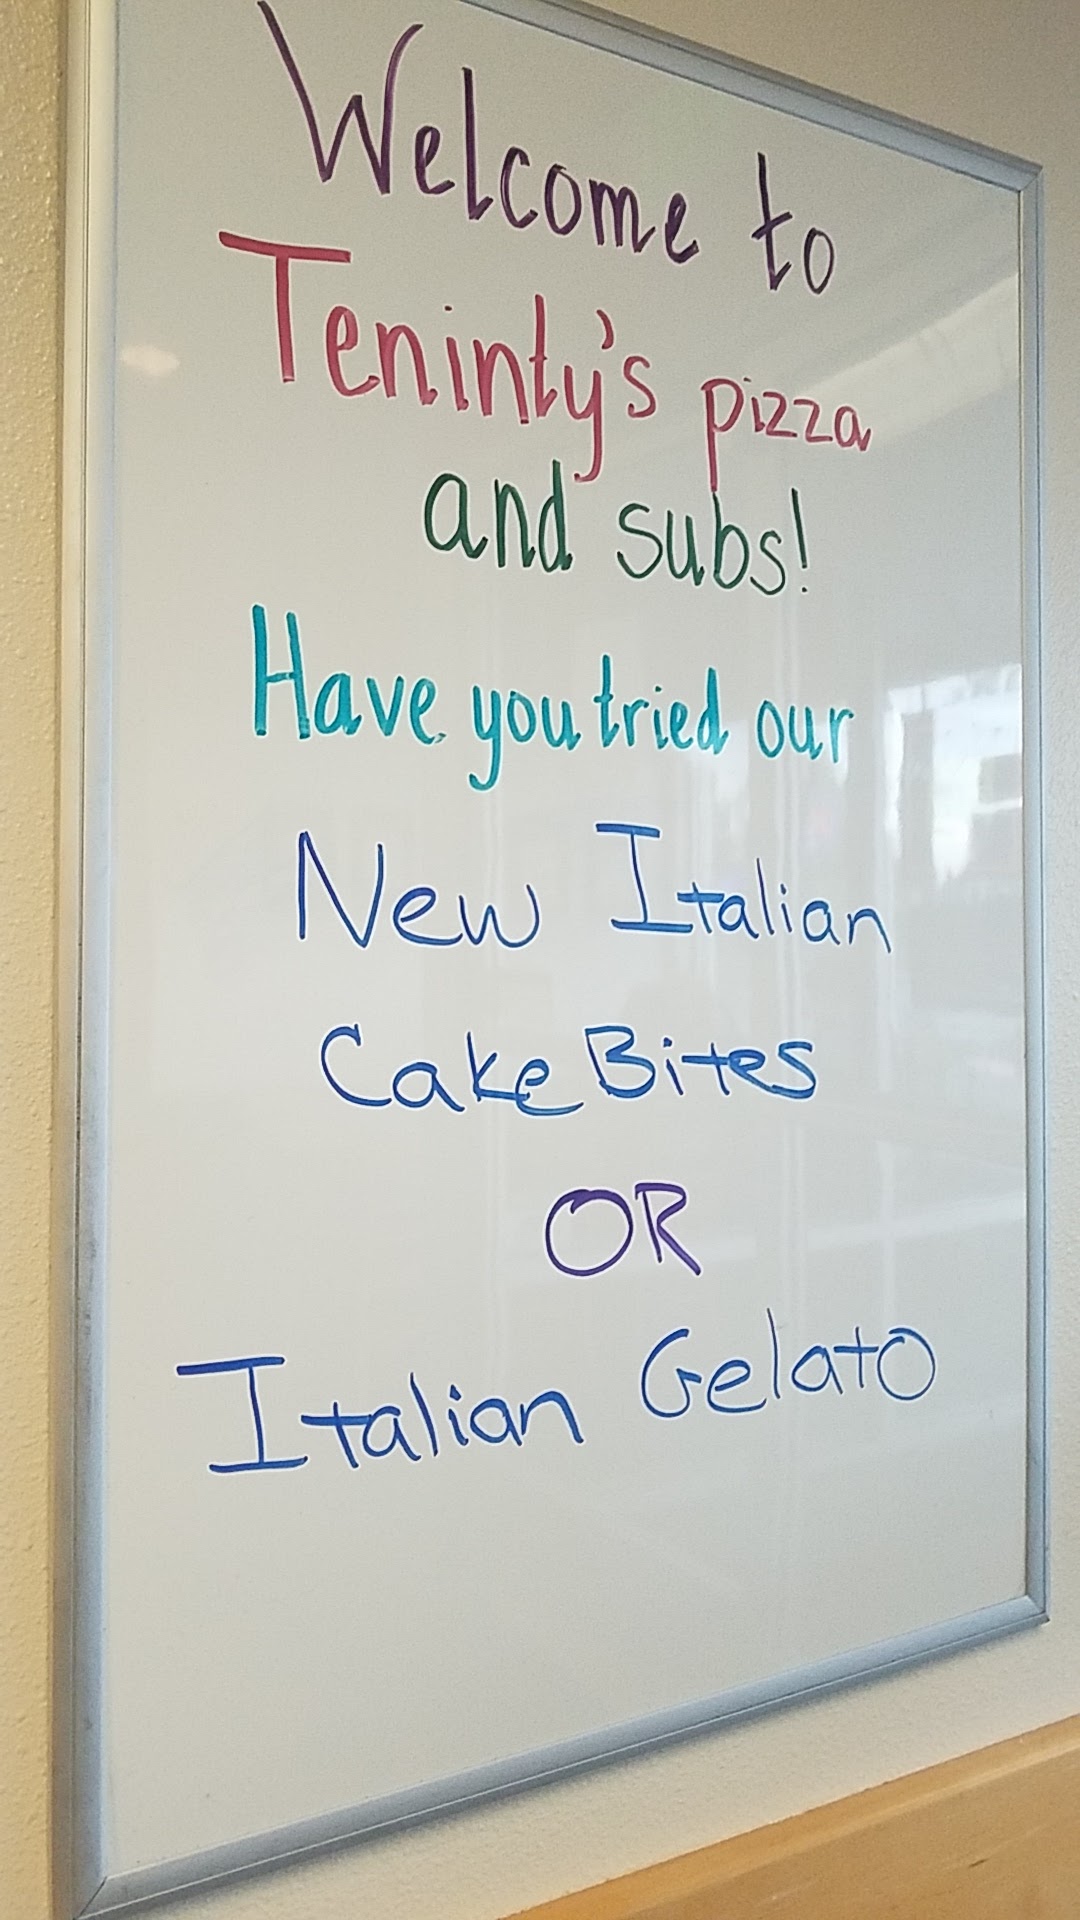 Welcome to
Teninty's pizza
and subs!
Have you tried our
New Italian
Cake Bites
OR
Italian Gelato